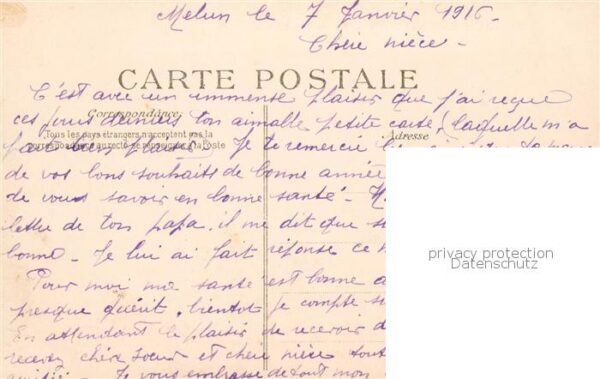 Melun le 7 Janvier 1916-
Chère nièce-
CARTE POSTALE
C'est avec un immense plaisir que j'ai reçue
Correspondance
ces jours derniers ton aimable petite carte, laquelle m'a
Tous les pays étrangers n'acceptent pas la
Adresse
fait bien plaisir. Je te remercie
correspondance au recto se renseigner à la Poste
de vos bons souhaits de bonne année
de vous savoir en bonne santé-
privacy protection
Datenschutz
lettre de ton papa, il me dit que
bonne- Je lui ai fait réponse ce
Pour moi ma santé est bonne
presque guérit, bientôt je compte
En attendant le plaisir de recevoir
recevez chère sœur et chère nièce
Je vous embrasse de tout mon